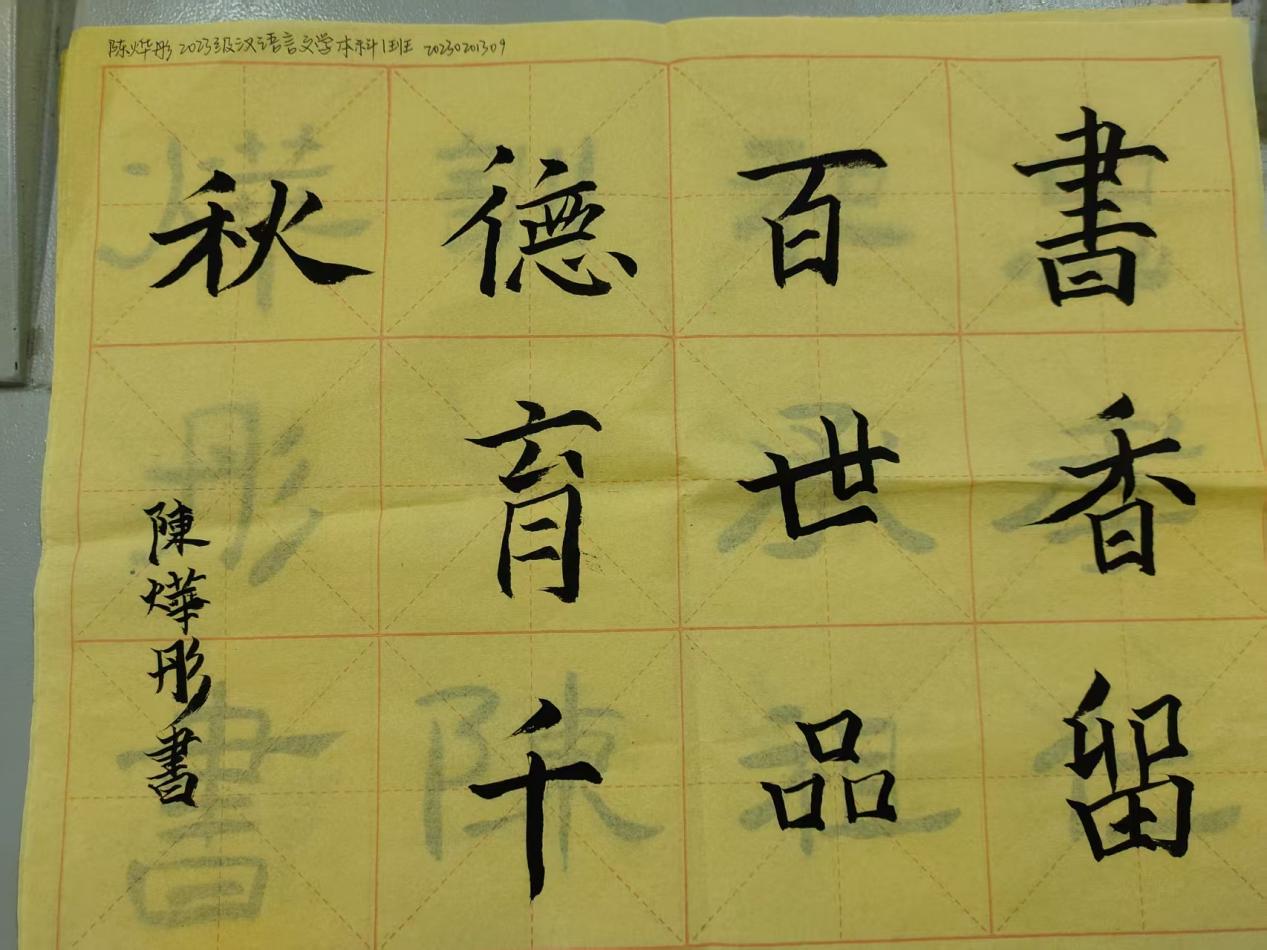 陈烨彤 2023级汉语言文学本科1班 20230201309
書香留
百世品
德育千
秋
陳燁彤書